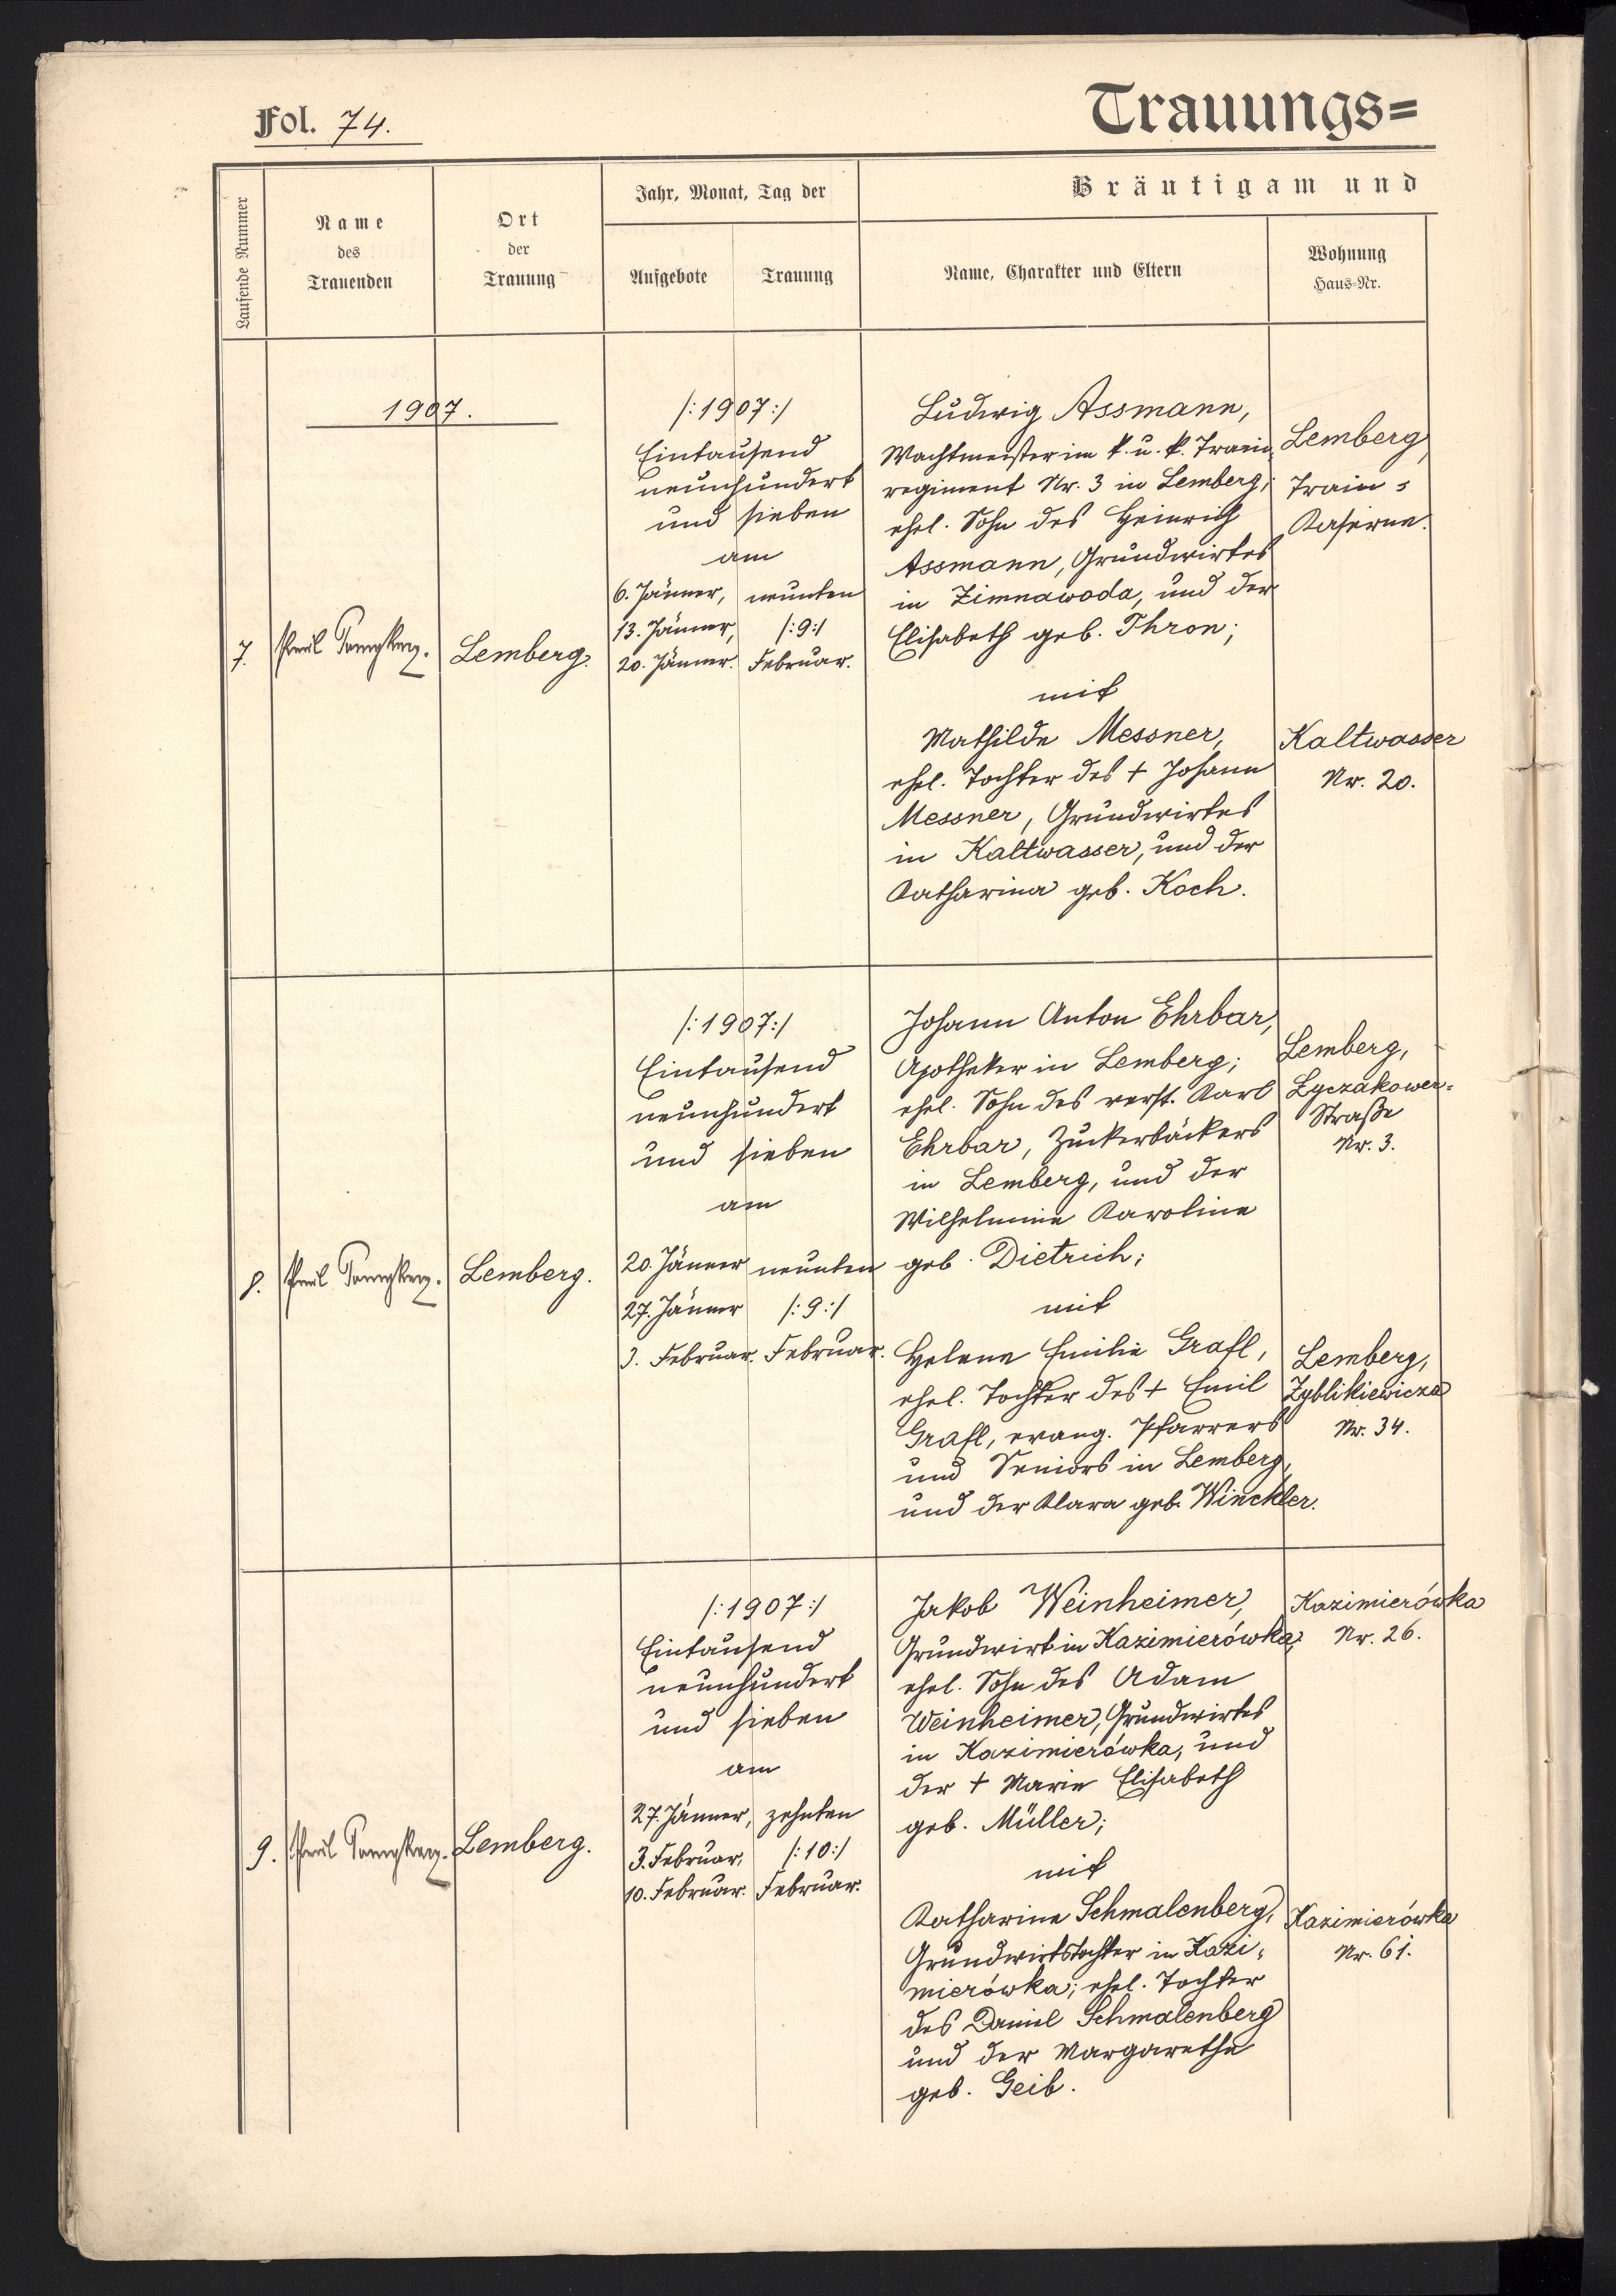 Fol. 74.
Trauungs=
Laufende Nummer
Name
des
Trauenden
Ort
der
Trauung
Jahr, Monat, Tag der
Aufgebote
Trauung
Bräutigam und
Name, Charakter und Eltern
Wohnung
Haus-Nr.
1907.
7.
Lemberg.
/:1907:/
Eintausend
neunhundert
und sieben
am
6. Jänner,
13. Jänner,
20. Jänner.
neunten
/:9:/
Februar.
Ludwig Assmann,
Wachtmeister im k. u. k. Train-
regiment Nr. 3 in Lemberg;
ehel. Sohn des Heinrich
Assmann, Grundwirtes
in Zimnawoda, und der
Elisabeth geb. Thron;
mit
Mathilde Messner,
ehel. Tochter des + Johann
Messner, Grundwirtes
in Kaltwasser, und der
Katharina geb. Koch.
Lemberg,
Train-
Kaserne.
Kaltwasser
Nr. 20.
8.
Lemberg.
/:1907:/
Eintausend
neunhundert
und sieben
am
20. Jänner
27. Jänner
3. Februar.
neunten
/:9:/
Februar.
Johann Anton Ehrbar,
Apotheker in Lemberg;
ehel. Sohn des verst. Karl
Ehrbar, Zuckerbäckers
in Lemberg, und der
Wilhelmine Karoline
geb. Dietrich;
mit
Helene Emilie Grafl,
ehel. Tochter des + Emil
Grafl, evang. Pfarrers
und Seniors in Lemberg,
und der Klara geb. Winckler.
Lemberg,
Łyczakower-
Straße
Nr. 3.
Lemberg,
Zyblikiewicza
Nr. 34.
9.
Lemberg.
/:1907:/
Eintausend
neunhundert
und sieben
am
27. Jänner,
3. Februar,
10. Februar.
zehnten
/:10:/
Februar.
Jakob Weinheimer,
Grundwirt in Kazimierówka;
ehel. Sohn des Adam
Weinheimer, Grundwirtes
in Kazimierówka, und
der + Marie Elisabeth
geb. Müller;
mit
Katharine Schmalenberg,
Grundwirtstochter in Kazi-
mierówka; ehel. Tochter
des Daniel Schmalenberg
und der Margarethe
geb. Geib.
Kazimierówka
Nr. 26.
Kazimierówka
Nr. 61.